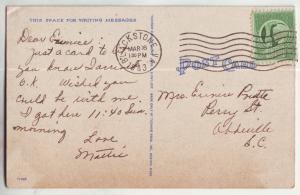 THIS SPACE FOR WRITING MESSAGES
Dear Eunice:
Just a card to
let you know I am
O.K. Wished you
could be with me.
I got here 11:40 Sun
morning
Love
Mattie
BLACKSTONE, VA.
MAR 16
1 30 PM
Mrs. Eunice
Percy St.
Abbeville
S.C.